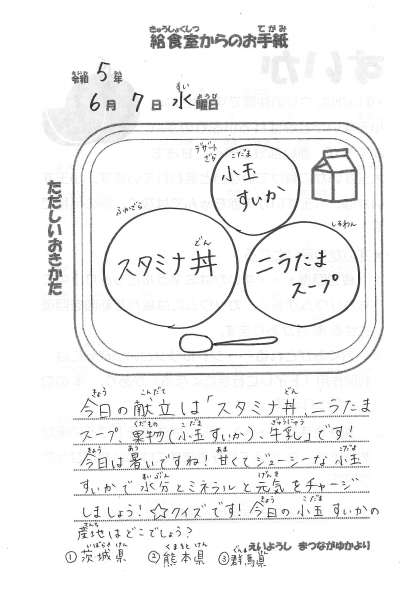 給食室からのお手紙
きゅうしょくしつ てがみ
令和 5 年
れいわ ねん
6 月 7 日 水 曜日
すい ようび
ただしいおきかた
デザートざら
こだま
小玉
すいか
ふかざら
どん
スタミナ丼
しるわん
ニラたま
スープ
きょう こんだて どん
今日の献立は「スタミナ丼、ニラたま
くだもの こだま ぎゅうにゅう
スープ、果物(小玉すいか)、牛乳」です!
きょう あつ あま こだま
今日は暑いですね!甘くてジューシーな小玉
すいぶん げんき
すいかで水分とミネラルと元気をチャージ
きょう こだま
しましょう!☆クイズです!今日の小玉すいかの
さんち
産地はどこでしょう?
いばらきけん くまもとけん ぐんまけん
①茨城県 ②熊本県 ③群馬県
えいようし まつながゆかより